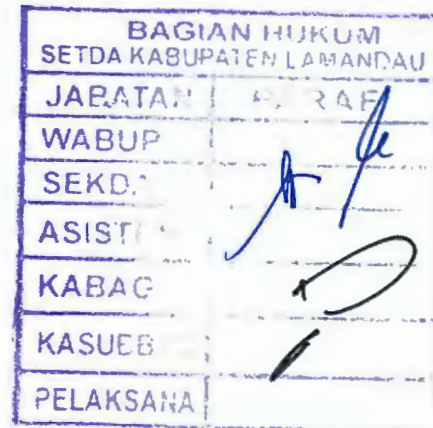 BAGIAN HUKUM
SETDA KABUPATEN LAMANDAU
JABATAN PARAF
WABUP
SEKDA
ASISTEN
KABAG
KASUBB
PELAKSANA